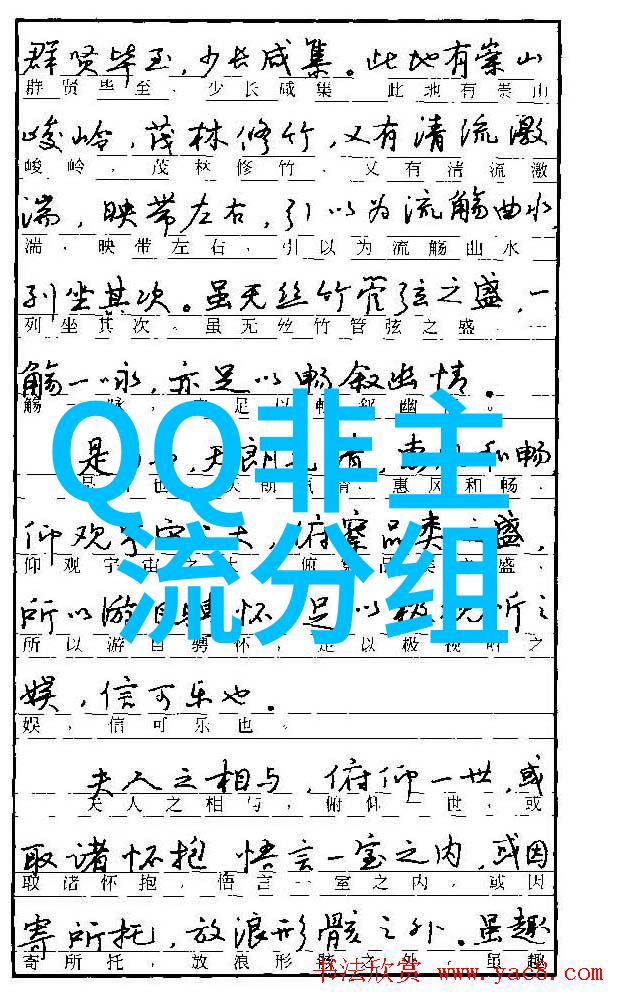 群贤毕至，少长咸集。此地有崇山
群贤毕至，少长咸集 此地有崇山
峻岭，茂林修竹，又有清流激
峻岭，茂林修竹，又有清流激
湍，映带左右，引以为流觞曲水，
湍，映带左右，引以为流觞曲水
列坐其次。虽无丝竹管弦之盛，一
列坐其次。虽无丝竹管弦之盛，一
觞一咏，亦足以畅叙幽情。
觞一咏，足以畅叙幽。
QQ非主
流分组
是，天朗，惠和畅
也，天朗，惠风和畅，
仰观宇宙之大，俯察品类之盛，
仰观宇宙之，俯品类之盛，
所以游目骋怀，足以极视听之
所以游目骋怀，足以极视听之
娱，信可乐也。
娱，信可乐也。
夫人之相与，俯仰一世，或
夫人之相与，俯仰一世，或
取诸怀抱 悟言一室之内，或因
取诸怀抱，悟言一室之内，或因
寄所托，放浪形骸之外。虽趣
寄所托，放浪形骸之外。虽趣
书法欣赏 www.yac8.com